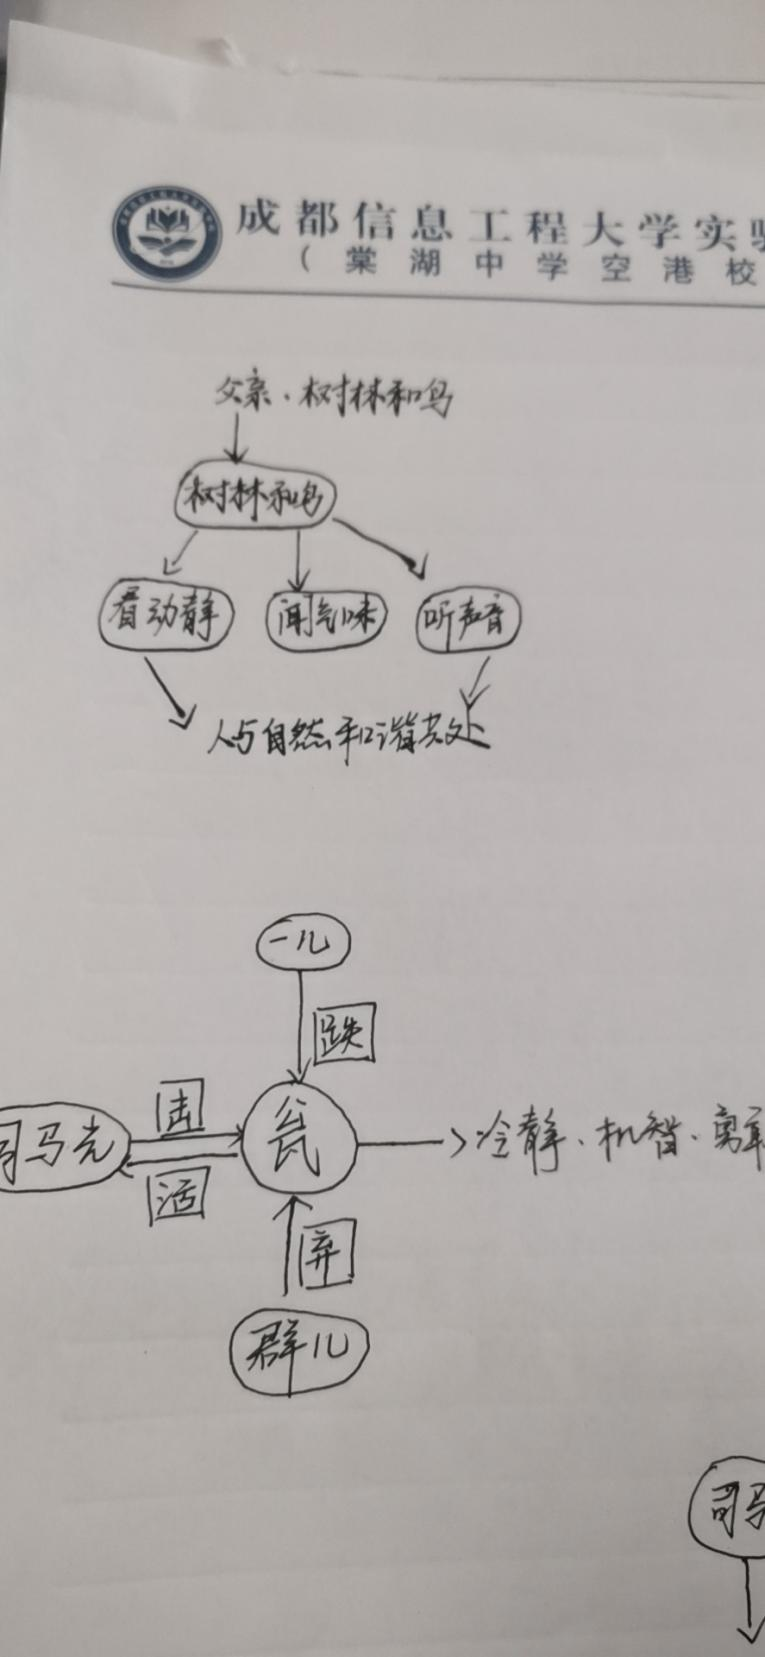 成都信息工程大学实验
(棠湖中学空港校
父亲、树林和鸟
树林和鸟
看动静 闻气味 听声音
人与自然和谐共处
一儿
跌
击
司马光 瓮 冷静、机智、勇
活
弃
群儿
司马